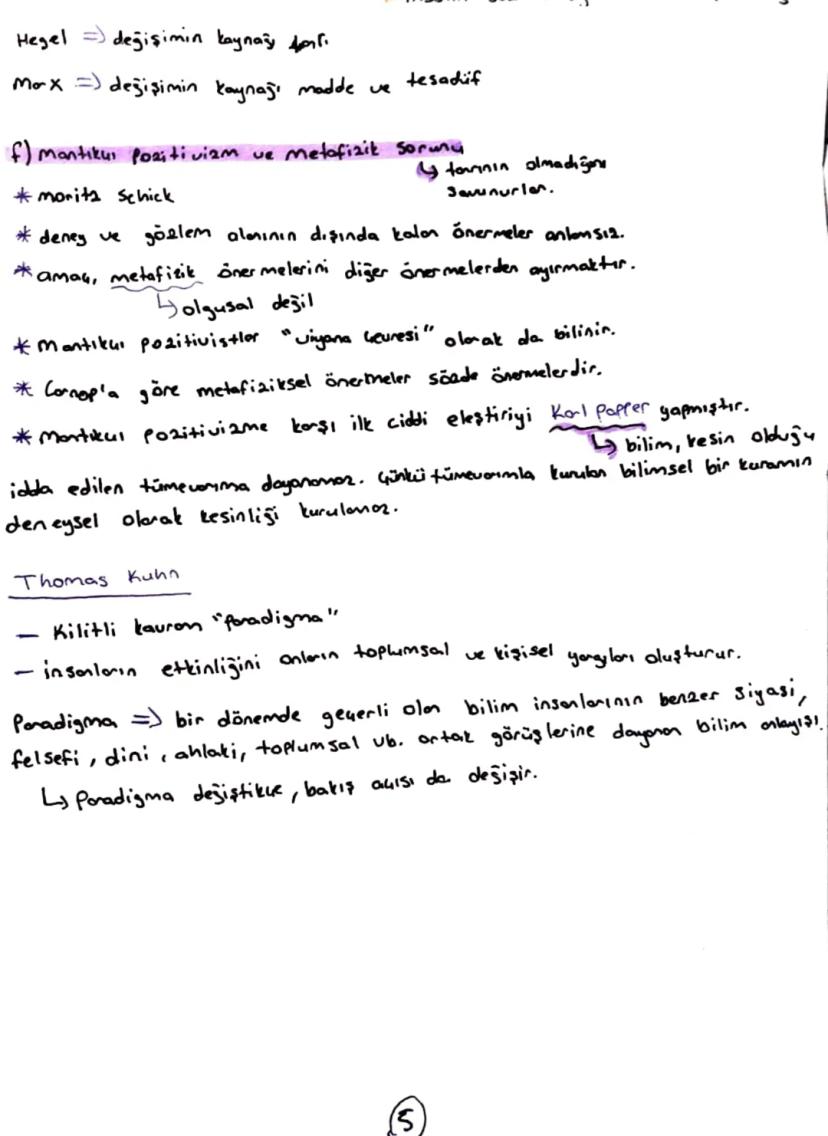 Hegel => değişimin kaynağı
Marx => değişimin kaynağı madde ve tesadüf
f) Mantıkçı pozitivizm ve metafizik sorunu
↳ tanrının olmadığını
savunurlar.
* moritz Schick
* deney ve gözlem alanının dışında kalan önermeler anlamsız.
* amaç, metafizik önermelerini diğer önermelerden ayırmaktır.
↳ olgusal değil
* mantıkçı pozitivistler "viyana çevresi" olarak da bilinir.
* Carnap'a göre metafiziksel önermeler sözde önermelerdir.
* mantıkçı pozitivizme karşı ilk ciddi eleştiriyi Karl Popper yapmıştır.
↳ bilim, kesin olduğu
idda edilen tümevarıma dayanamaz. Çünkü tümevarımla kurulan bilimsel bir kuramın
deneysel olarak kesinliği kurulamaz.
Thomas Kuhn
— Kilitli kavram "Paradigma"
— insanların etkinliğini onların toplumsal ve kişisel yargıları oluşturur.
Paradigma => bir dönemde geçerli olan bilim insanlarının benzer siyasi,
felsefi, dini, ahlaki, toplumsal vb. ortak görüşlerine dayanan bilim anlayışı.
↳ Paradigma değiştikçe, bakış açısı da değişir.
5